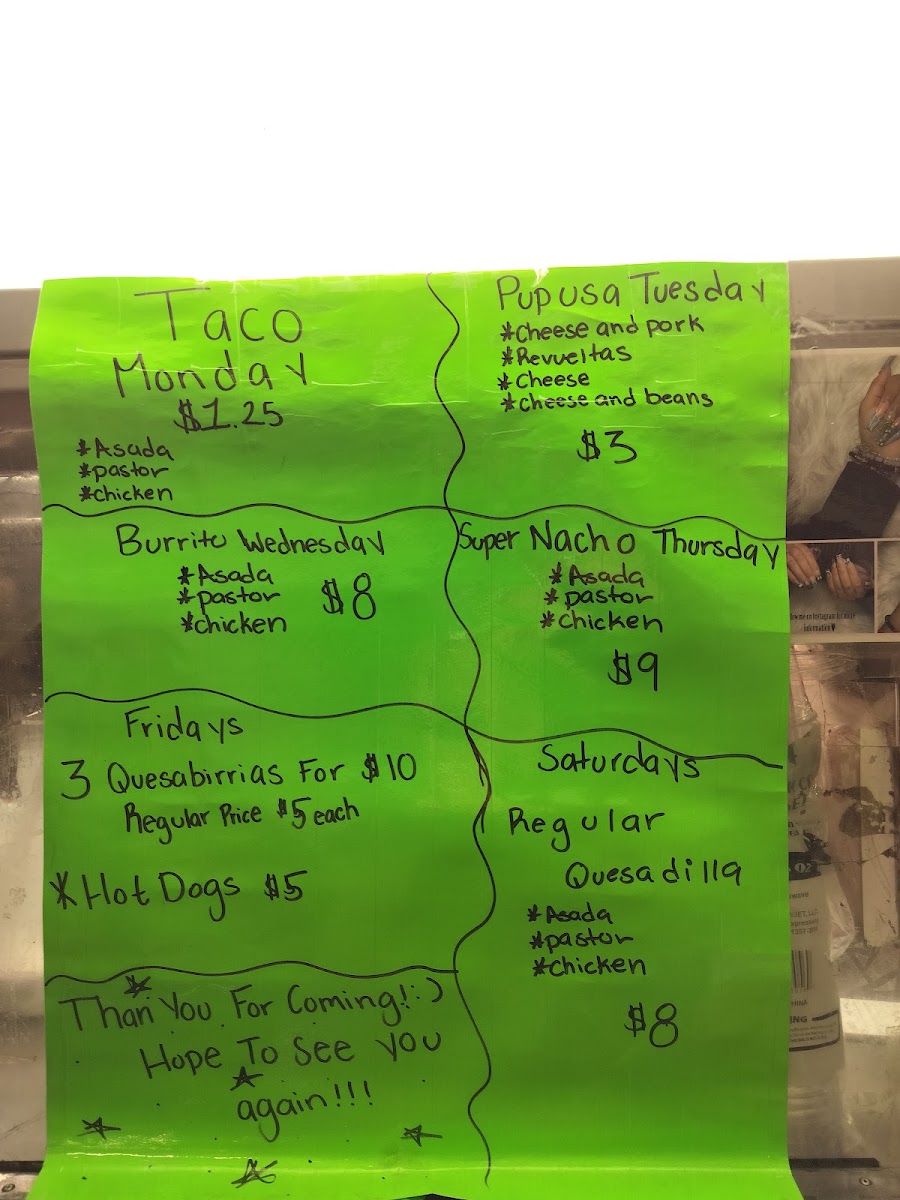 Taco
Monday
$1.25
*Asada
*pastor
*chicken
Pupusa Tuesday
*Cheese and pork
*Revueltas
*Cheese
*Cheese and beans
$3
Burrito Wednesday
*Asada
*pastor
*chicken
$8
Super Nacho Thursday
*Asada
*pastor
*chicken
$9
Fridays
3 Quesabirrias For $10
Regular Price $5 each
*Hot Dogs $5
Saturdays
Regular
Quesadilla
*Asada
*pastor
*chicken
$8
Than You For Coming! :)
Hope To See You
again!!!
information